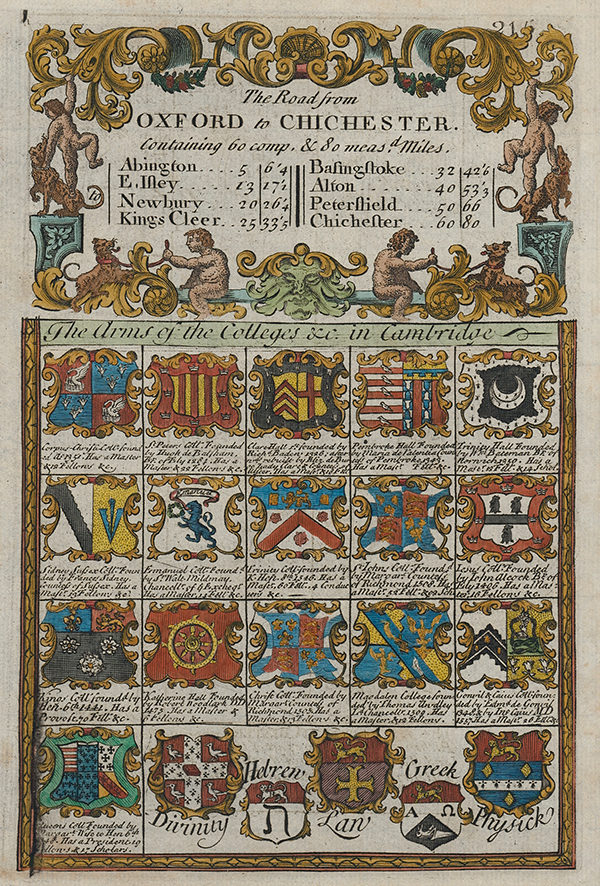 215
The Road from
OXFORD to CHICHESTER.
Containing 60 comp. & 80 meas.d Miles.
to
Abington .... 5 6'4
E. Isley .... 13 17'2
Newbury .... 20 26'4
Kings Cleer .... 25 33'5
Basingstoke .... 32 42'6
Alton .... 40 53'3
Petersfield .... 50 66
Chichester .... 60 80
The Arms of the Colleges &c. in Cambridge
Corpus-Christi Coll: foun
Has a Master
& 12 Fellows &c.
St. Peters Coll: Founded
by Hugh de Balsham,
Bp. of Ely Has a
Master & 22 Fellows &c.
Clare Hall founded by
Rich.d Baden 1326, after
Pembroke Hall Founded
by Maria de Valentia Count.
of Pembroke
Has a Mast.r Fell. &c.
Trinity Hall Founded
by Wm. Bateman Bp. of
Norwich Has a
Mast.r Fell. & 14 Schol.
Emanuel
Sidney Sussex Coll: Foun
ded by Frances Sidney
Countess of Sussex. Has a
Mast.r Fellows &c.
Emanuel Coll: Found.d
by Sr. Walt. Mildmay,
Chancel.r of ye. Excheqr.
Has a Master, Fell. &c.
Trinity Coll: founded by
K. Hen. 8th Has a
Mast.r 60 Fell. 4 Conduc
ters &c
St. Johns Coll: Found.d
by Margar.t Countess
of Richmond 1508. Has a
Mast.r Fell. Schol.
Jesus Coll: Founded
by John Alcock Bp. of
Ely Has a Mas
ter, 16 Fellows &c.
Kings Coll: found.d by
Hen. 6th Has a
Provost, 70 Fell. &c.
Katherine Hall Founded
by Robert Woodlark DD
1475. Has a Master &
6 Fellows &c.
Christ Coll: Founded by
Margar.t Countess of
Richmond Has a
Master, & 15 Fellows &c.
Magdalen College foun
ded by Thomas Audley
L.d Chancel.r
Master, & 12 Fellows.
Gonvil & Caius Coll: foun
ded by Edm.d de Gonvil
1348 & by Dr. Caius
1557. Has a Mast.r 26 Fell. &c.
Queens Coll: Founded by
Margar.t Wife to Hen. 6th
Has a President, 19
Fellows & 17 Scholars.
Divinity
Hebrew
Law
Greek
Α Ω
Physick